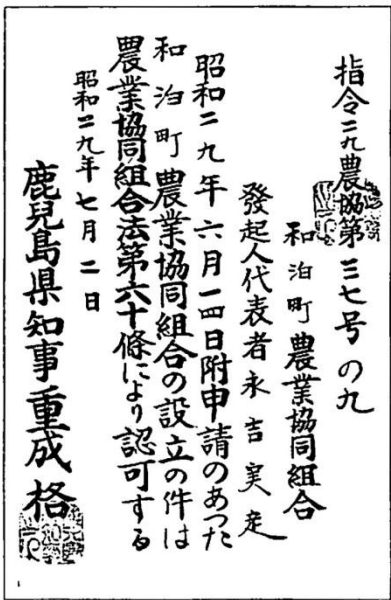 指令二九農協第三七号の九
和泊町農業協同組合
發起人代表者永吉実
昭和二九年六月一四日附申請のあつた
和泊町農業協同組合の設立の件は
農業協同組合法第六十條により認可する
昭和二九年七月二日
鹿兒島県知事重成格